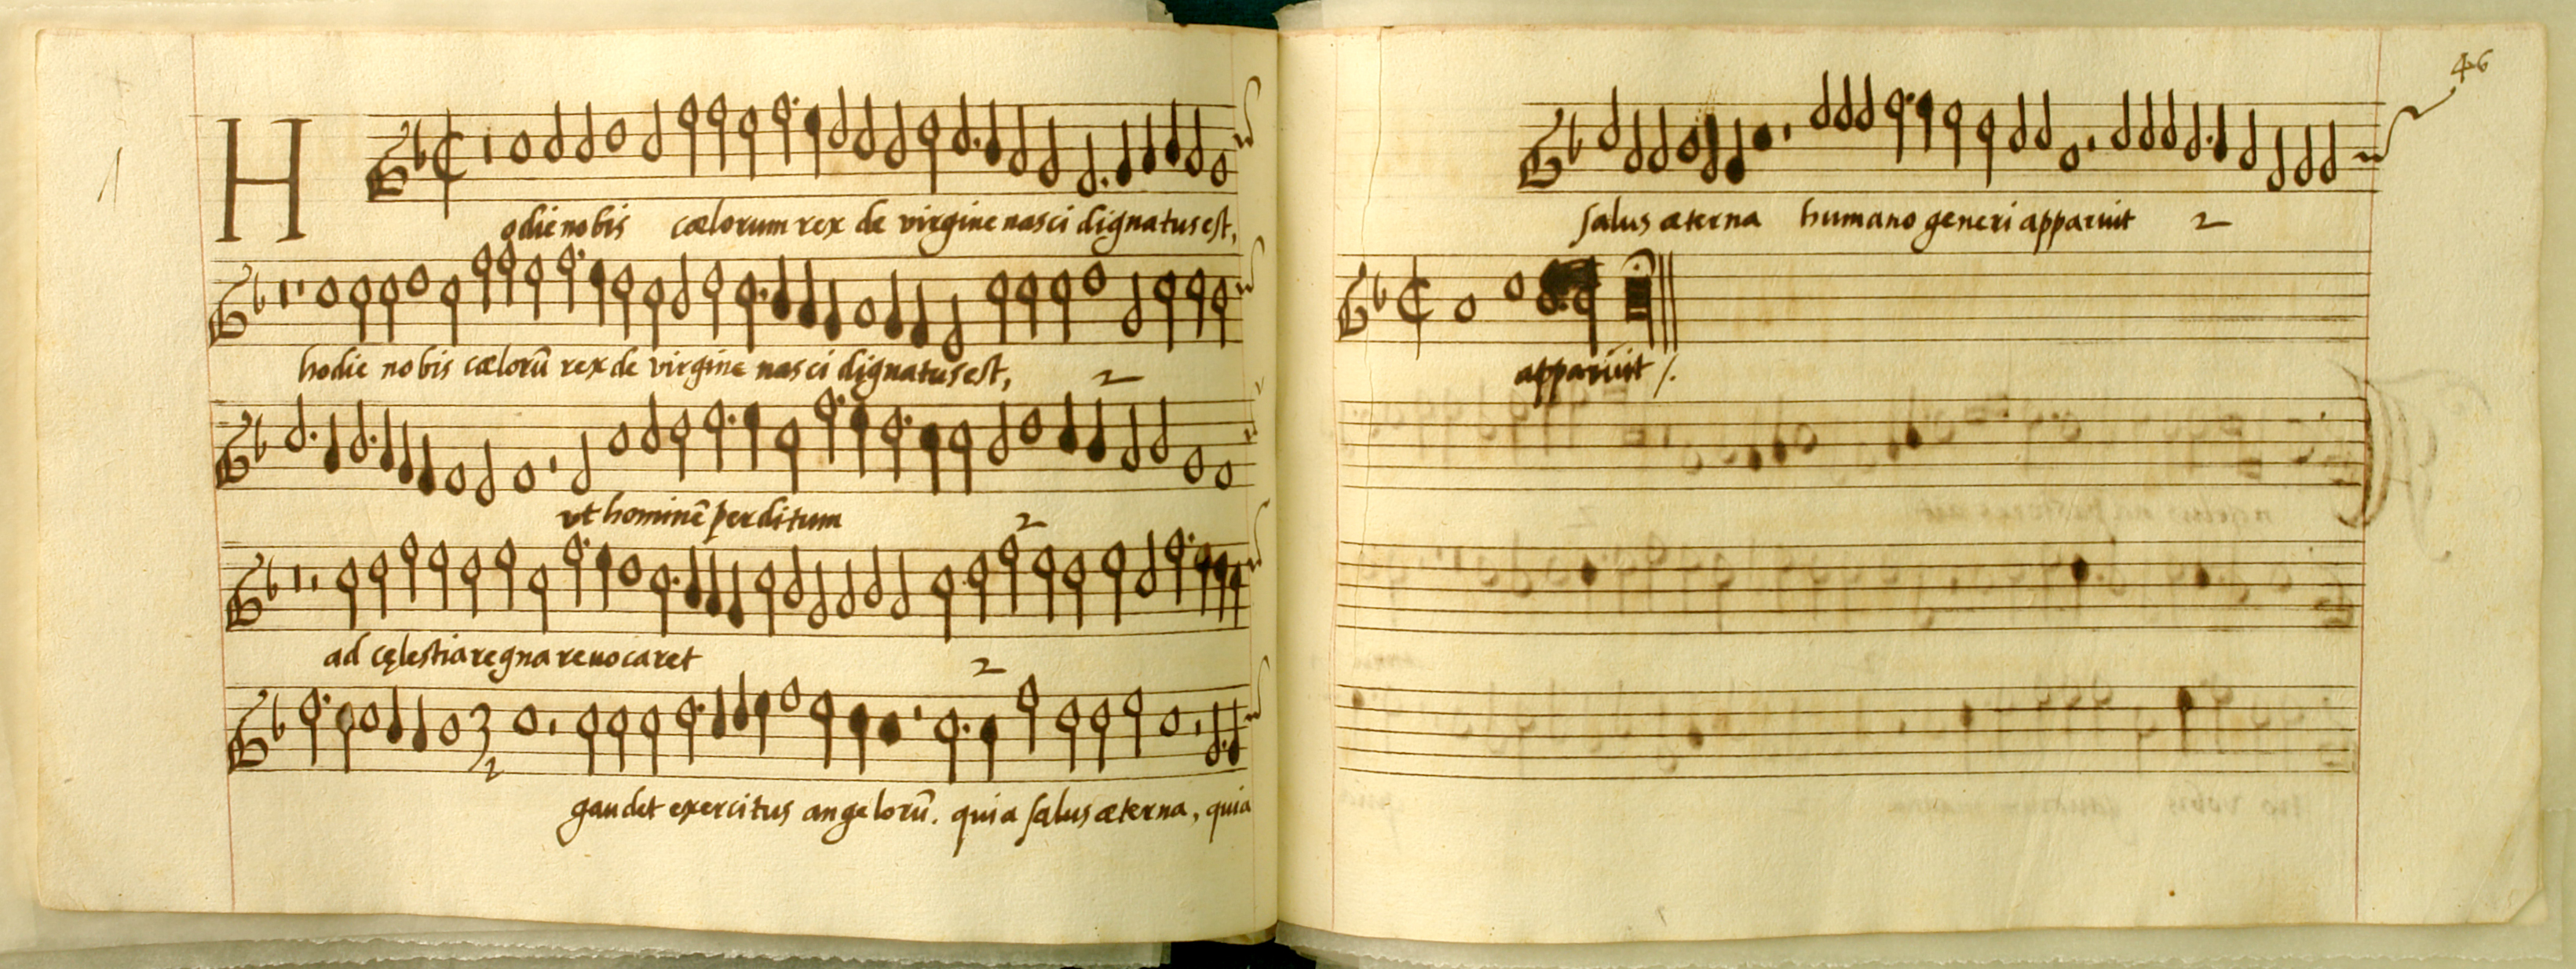 1
Hodie nobis cælorum rex de virgine nasci dignatus est,
hodie nobis cælorū rex de virgine nasci dignatus est, 2
ut hominē perditum
2
ad cęlestia regna revocaret
2
3
2
gaudet exercitus angelorū. quia salus æterna, quia
46
salus æterna humano generi apparuit 2
apparuit /.